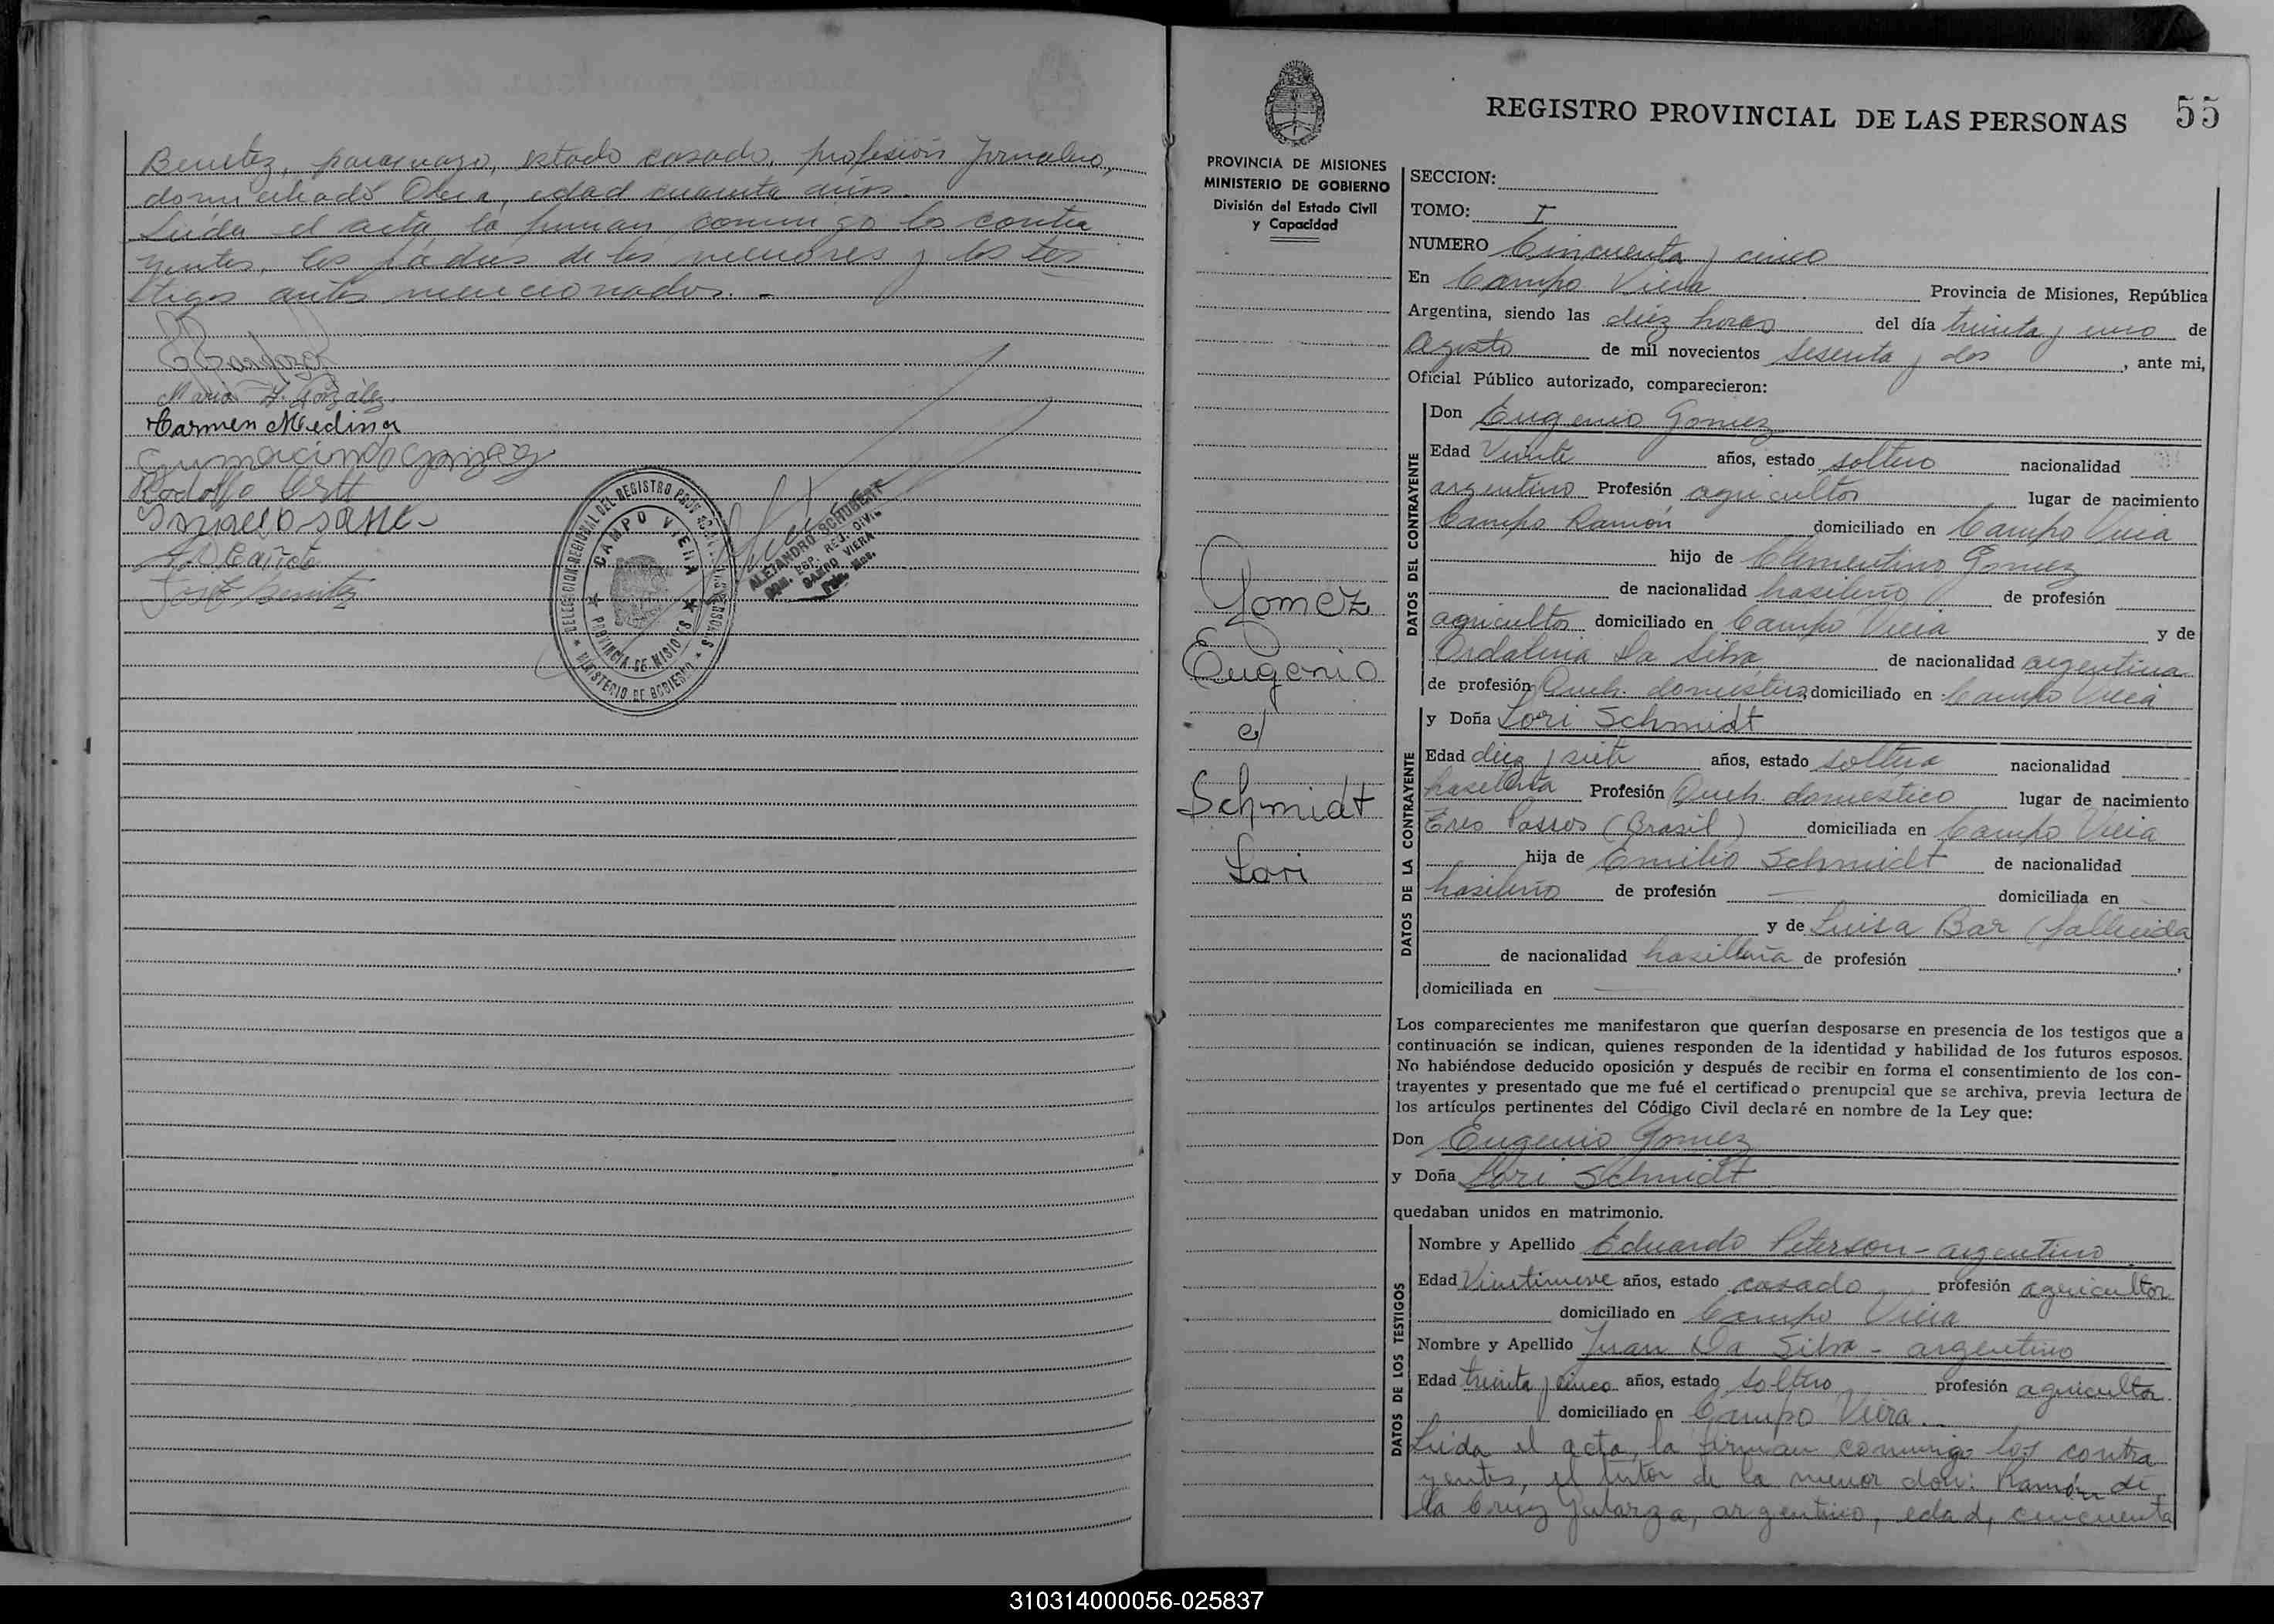 Benitez, paraguayo, estado casado, profesión Jornalero,
domiciliado Obera, edad cuarenta años.
Leída el acta, la firman conmigo los contra
yentes, los padres de los menores y los tes
tigos antes mencionados. -
Maria F. González
Carmen Medina
Rodolfo
José Benitez
DELEGACION REGIONAL DEL REGISTRO PROV. DE LAS PERSONAS
CAMPO VIERA
PROVINCIA DE MISIONES
MINISTERIO DE GOBIERNO
ALEJANDRO SCHUBERT
REG. CIVIL
CAMPO VIERA
Pcia. Mnes.
REGISTRO PROVINCIAL DE LAS PERSONAS 55
PROVINCIA DE MISIONES
MINISTERIO DE GOBIERNO
División del Estado Civil
y Capacidad
Gomez
Eugenio
c/
Schmidt
Lori
SECCION:
TOMO: I
NUMERO Cincuenta y cinco
En Campo Viera Provincia de Misiones, República
Argentina, siendo las diez horas del día treinta y uno de
Agosto de mil novecientos sesenta y dos, ante mi,
Oficial Público autorizado, comparecieron:
DATOS DEL CONTRAYENTE
Don Eugenio Gomez
Edad Veinte años, estado soltero nacionalidad
argentino Profesión agricultor lugar de nacimiento
Campo Ramón domiciliado en Campo Viera
hijo de Clementino Gomez
de nacionalidad brasileño de profesión
agricultor domiciliado en Campo Viera y de
Ordalina Da Silva de nacionalidad argentina
de profesión Queh. domésticos domiciliado en Campo Viera
DATOS DE LA CONTRAYENTE
y Doña Lori Schmidt
Edad diez y siete años, estado soltera nacionalidad
brasileña Profesión Queh. domestico lugar de nacimiento
Tres Passos (Brasil) domiciliada en Campo Viera
hija de Emilio Schmidt de nacionalidad
brasileño de profesión — domiciliada en —
y de Luisa Bar (fallecida
de nacionalidad brasileña de profesión ,
domiciliada en —
Los comparecientes me manifestaron que querían desposarse en presencia de los testigos que a
continuación se indican, quienes responden de la identidad y habilidad de los futuros esposos.
No habiéndose deducido oposición y después de recibir en forma el consentimiento de los con-
trayentes y presentado que me fué el certificado prenupcial que se archiva, previa lectura de
los artículos pertinentes del Código Civil declaré en nombre de la Ley que:
Don Eugenio Gomez
y Doña Lori Schmidt
quedaban unidos en matrimonio.
DATOS DE LOS TESTIGOS
Nombre y Apellido Eduardo Peterson - argentino
Edad Veintinueve años, estado casado profesión agricultor
domiciliado en Campo Viera
Nombre y Apellido Juan Da Silva - argentino
Edad treinta y cinco años, estado soltero profesión agricultor
domiciliado en Campo Viera.
Leída el acta, la firman conmigo los contra
yentes, el tutor de la menor don: Ramón de
la Cruz Galarza, argentino, edad, cincuenta
310314000056-025837